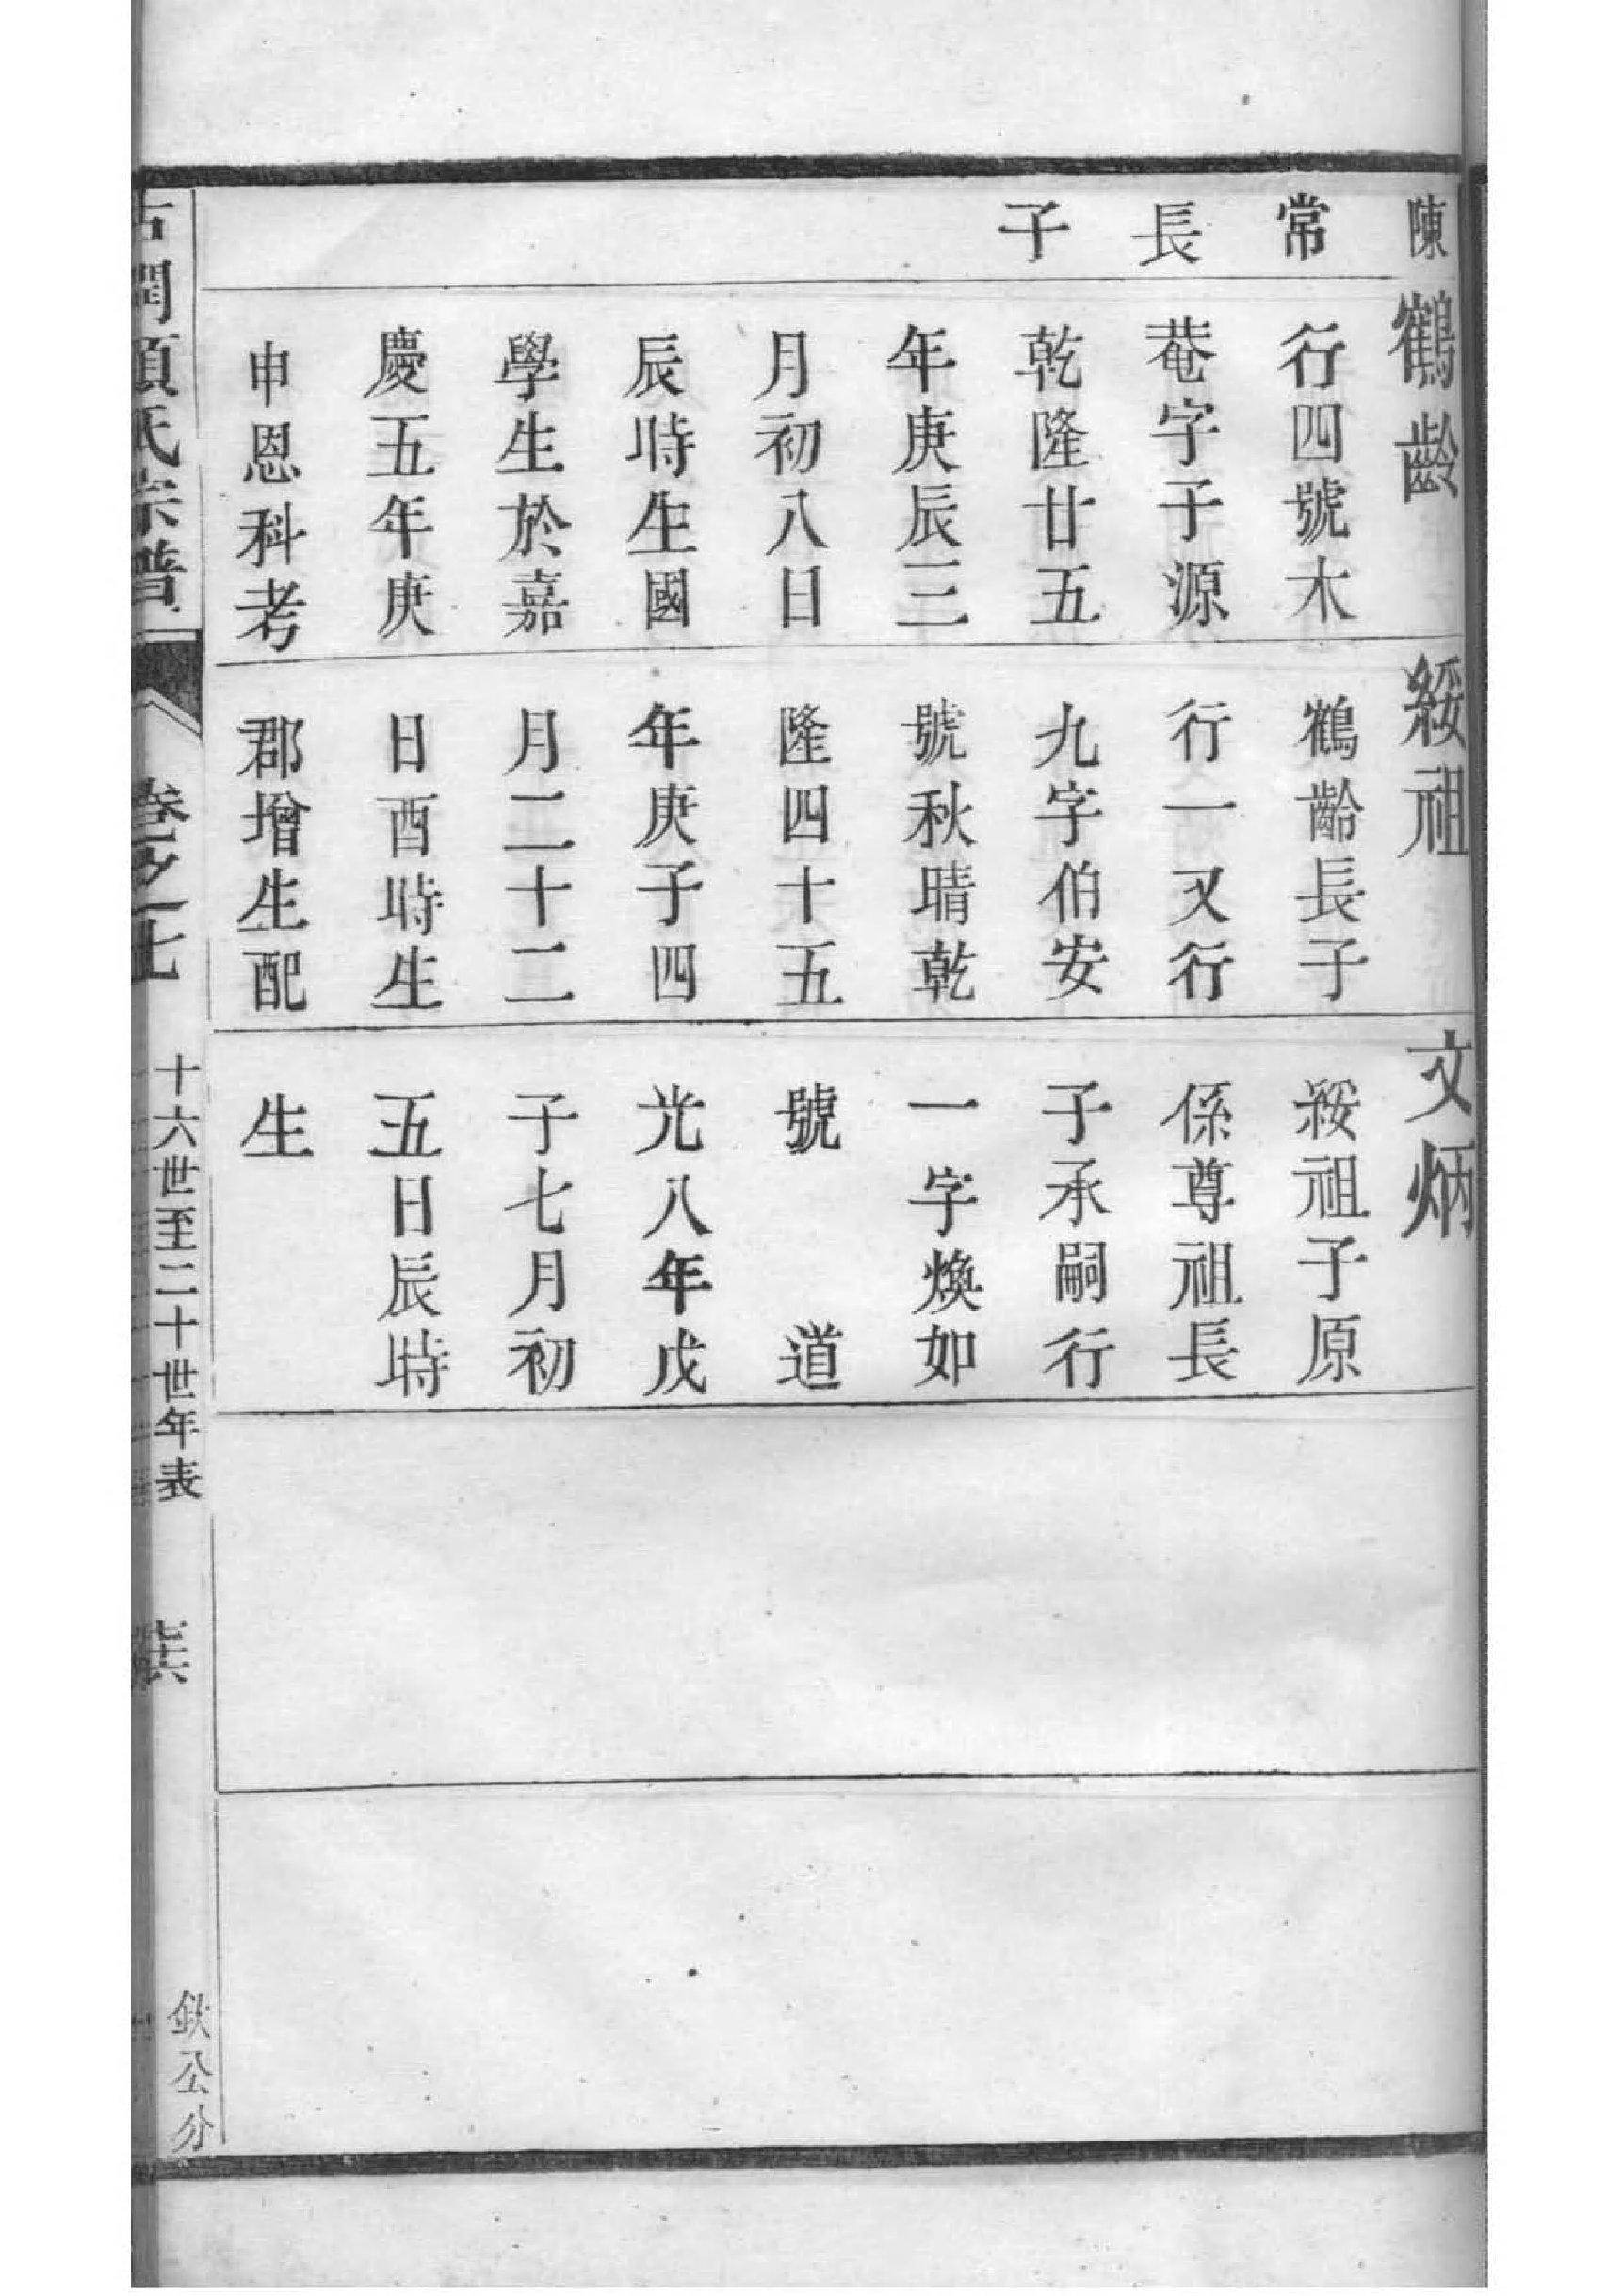 陳常長子
鶴齡
行四號木
菴字子源
乾隆廿五
年庚辰三
月初八日
辰時生國
學生於嘉
慶五年庚
申恩科考
綏祖
鶴齡長子
行一又行
九字伯安
號秋晴乾
隆四十五
年庚子四
月二十二
日酉時生
郡增生配
文炳
綏祖子原
係尊祖長
子承嗣行
一字煥如
號　　道
光八年戊
子七月初
五日辰時
生
氏宗譜
卷之七
十六世至二十世年表
欽公分